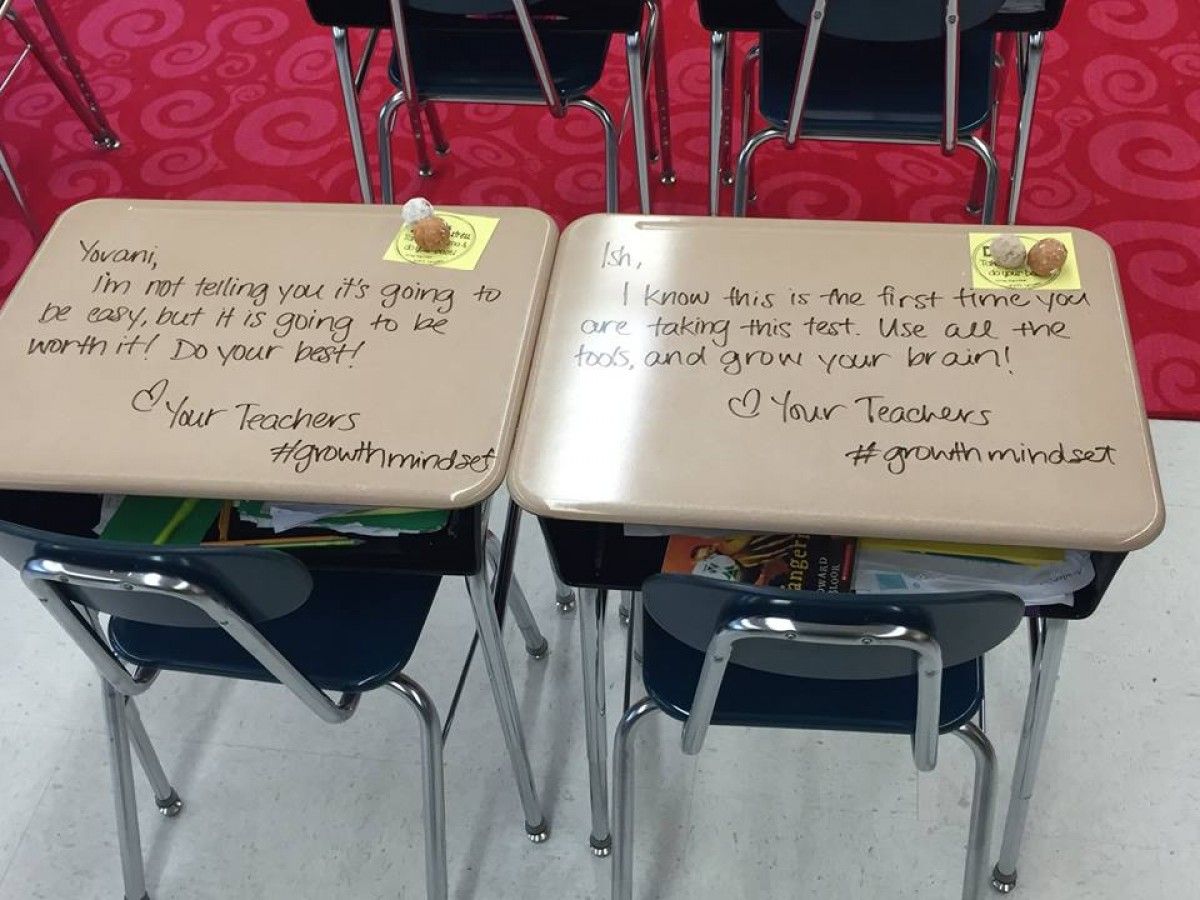 Yovani,
I'm not telling you it's going to
be easy, but it is going to be
worth it! Do your best!
♡ Your Teachers
#growthmindset
do your best!
Ish,
I know this is the first time you
are taking this test. Use all the
tools, and grow your brain!
♡ Your Teachers
#growthmindset
do your be